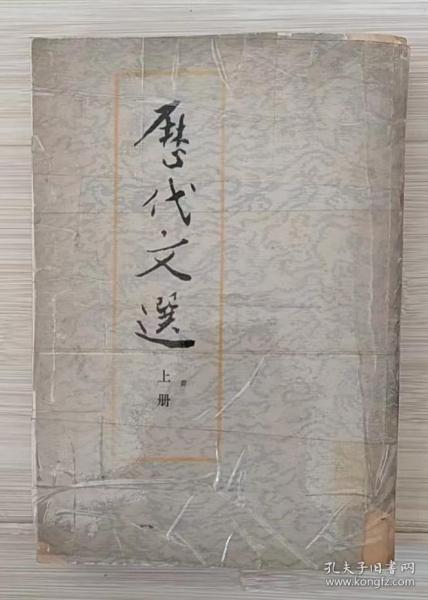 歷代文選
上册
孔夫子旧书网
www.kongfz.com